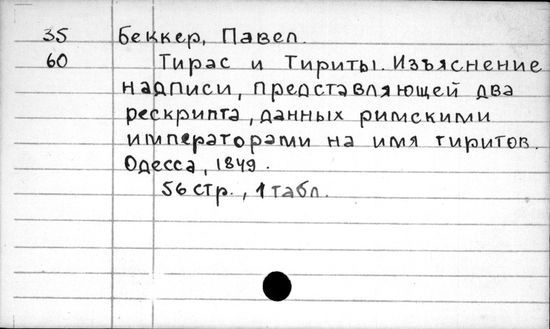 35 Беккер, Павел.
60 Тирас и Тириты. Изъяснение
надписи, представляющей два
рескрипта, данных римскими
императорами на имя тиритов.
Одесса, 1849.
56 стр., 1 табл.